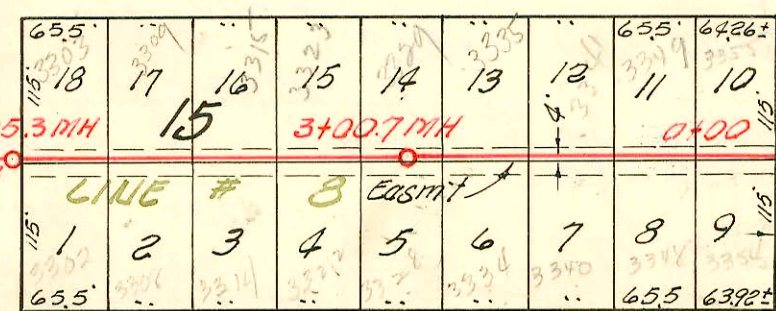 65.5' " " " " " " 65.5' 64.26±
3303 3309 3315 3323 3329 3335 3341 3349 3355
115' 18 17 16 15 14 13 12 11 10 115'
15
5.3 MH 3+00.7 MH 4' 0+00
LINE # 8 Easm't
115' 1 2 3 4 5 6 7 8 9 115'
3302 3308 3314 3322 3328 3334 3340 3348 3354
65.5' " " " " " " 65.5 63.92±